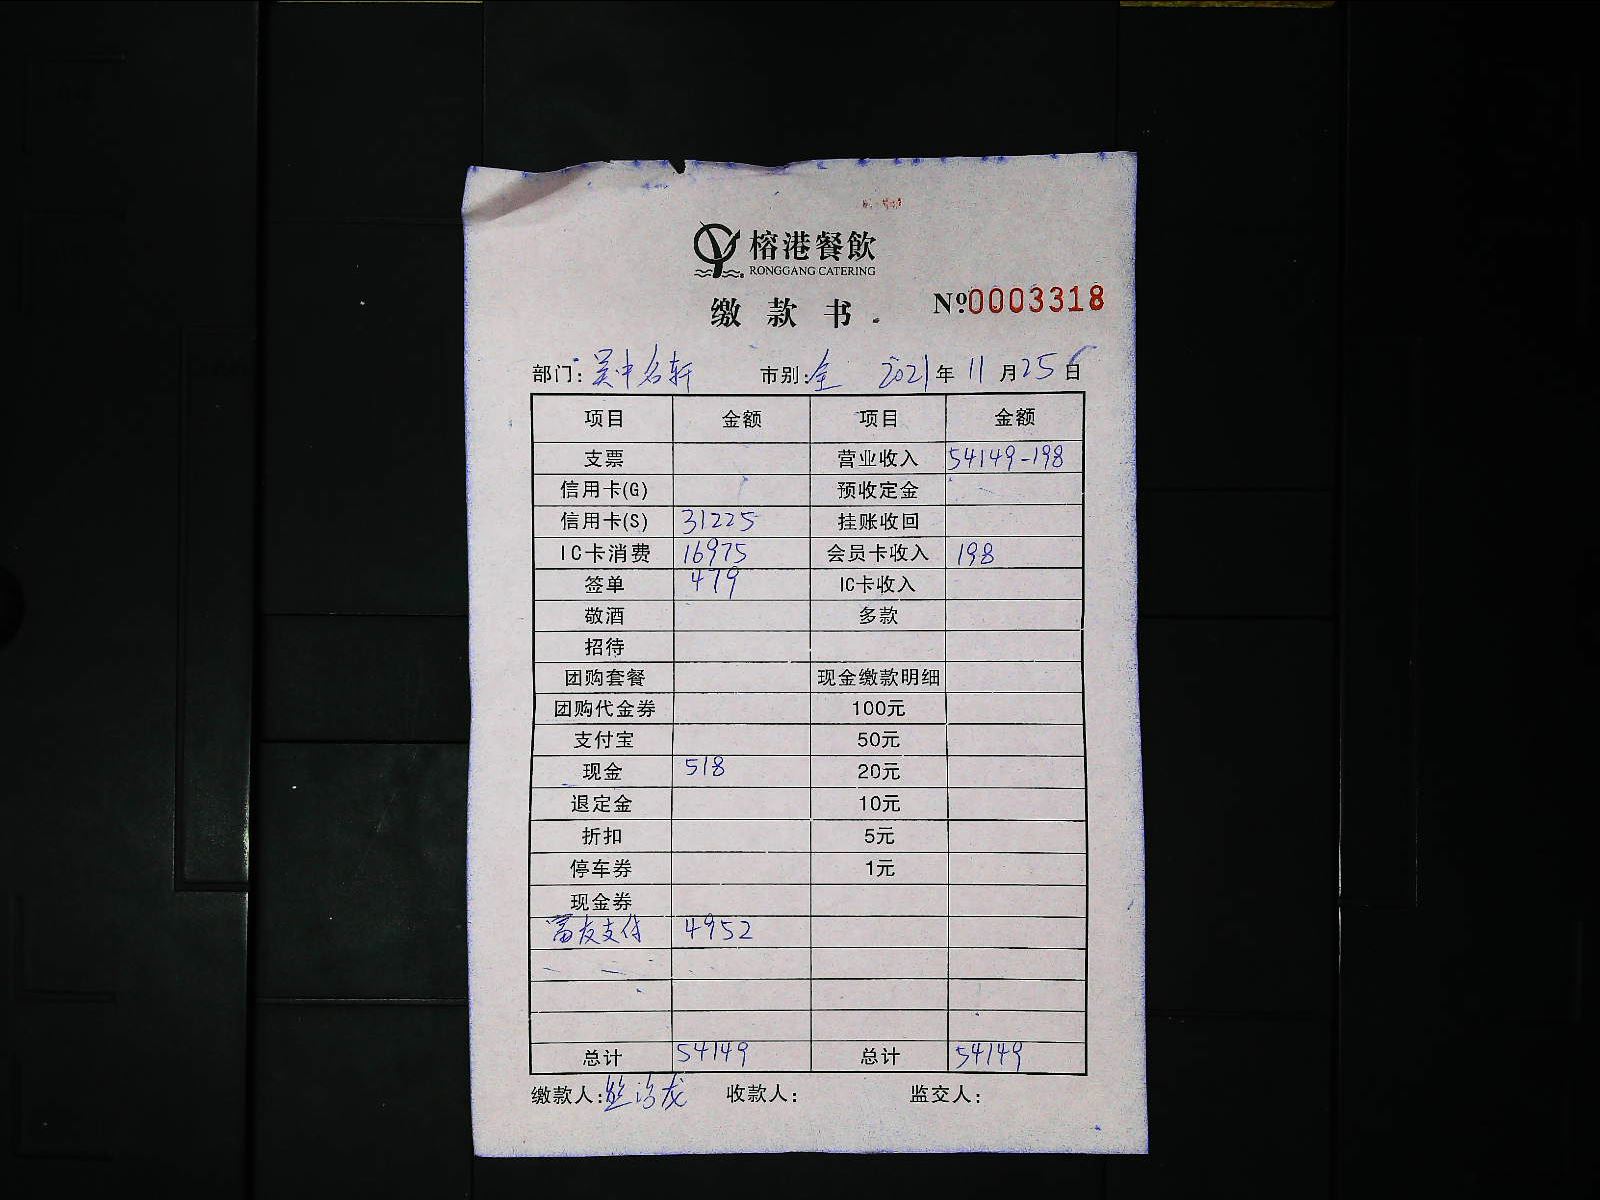 榕港餐飲
RONGGANG CATERING
缴款书
Nº0003318
部门: 吴中名轩 市别: 全 2021年11月25日
项目 金额 项目 金额
支票 营业收入 54149-198
信用卡(G) 预收定金
信用卡(S) 31225 挂账收回
IC卡消费 16975 会员卡收入 198
签单 479 IC卡收入
敬酒 多款
招待
团购套餐 现金缴款明细
团购代金券 100元
支付宝 50元
现金 518 20元
退定金 10元
折扣 5元
停车券 1元
现金券
富友支付 4952
总计 54149 总计 54149
缴款人: 收款人: 监交人: